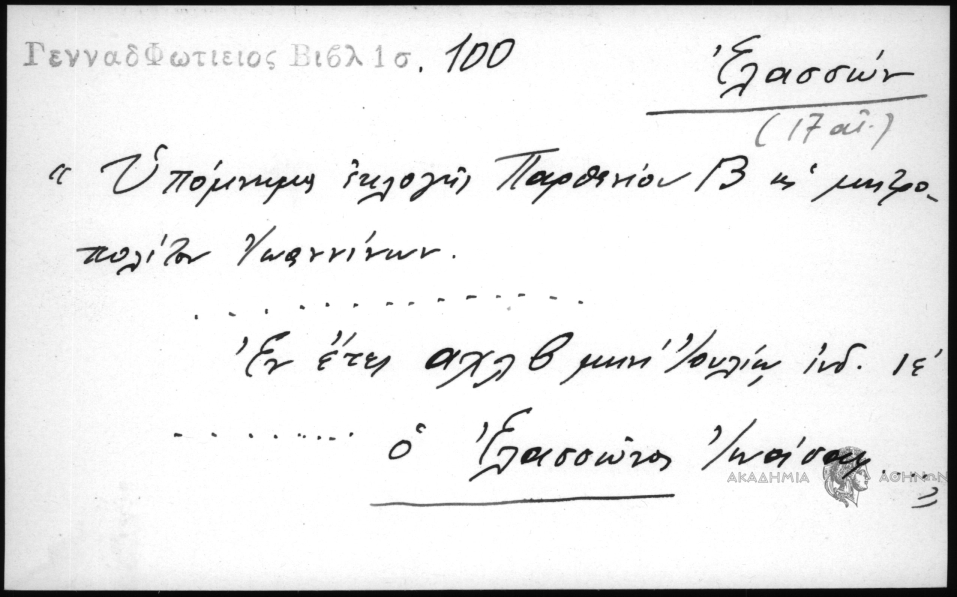 ΓενναδΦωτιειος Βιβλ 1σ. 100
Ἐλασσών
(17 αἰ.)
« Ὑπόμνημα ἐκλογῆς Παρθενίου Β ὡς μητρο-
πολίτου Ἰωαννίνων.
Ἐν ἔτει αχλβ μηνὶ Ἰουλίῳ ἰνδ. ιέ
ὁ Ἐλασσῶνος
ΑΚΑΔΗΜΙΑ ΑΘΗΝΩΝ